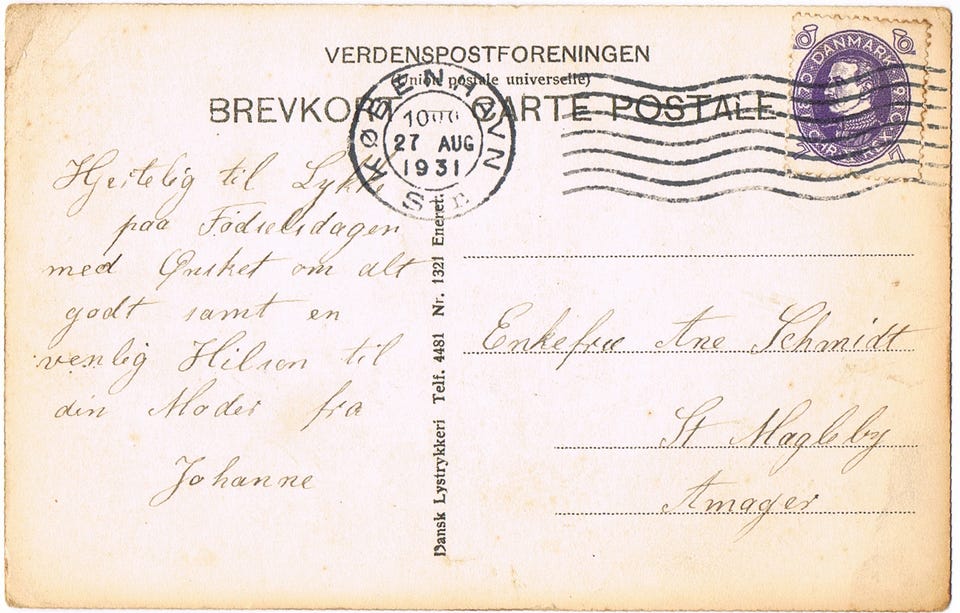 VERDENSPOSTFORENINGEN
(Union postale universelle)
BREVKORT CARTE POSTALE
KØBENHAVN
27 AUG
1931
DANMARK
Hjertelig til Lykke
paa Fødselsdagen
med Ønsket om alt
godt samt en
venlig Hilsen til
din Moder fra
Johanne
Dansk Lystrykkeri Telf. 4481 Nr. 1321 Eneret.
Enkefru Ane Schmidt
St Magleby
Amager